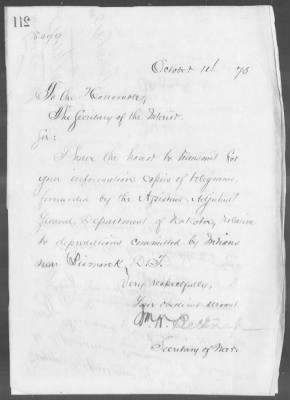 211
October 11 75
To the Honorable,
The Secretary of the Interior.
Sir:
I have the honor to transmit for
your information copies of telegrams
forwarded by the Assistant Adjutant
General Department of Dakota, relative
to depredations committed by Indians
near Bismarck, D.T.
Very respectfully,
Your obedient servant
Wm W. Belknap
Secretary of War.